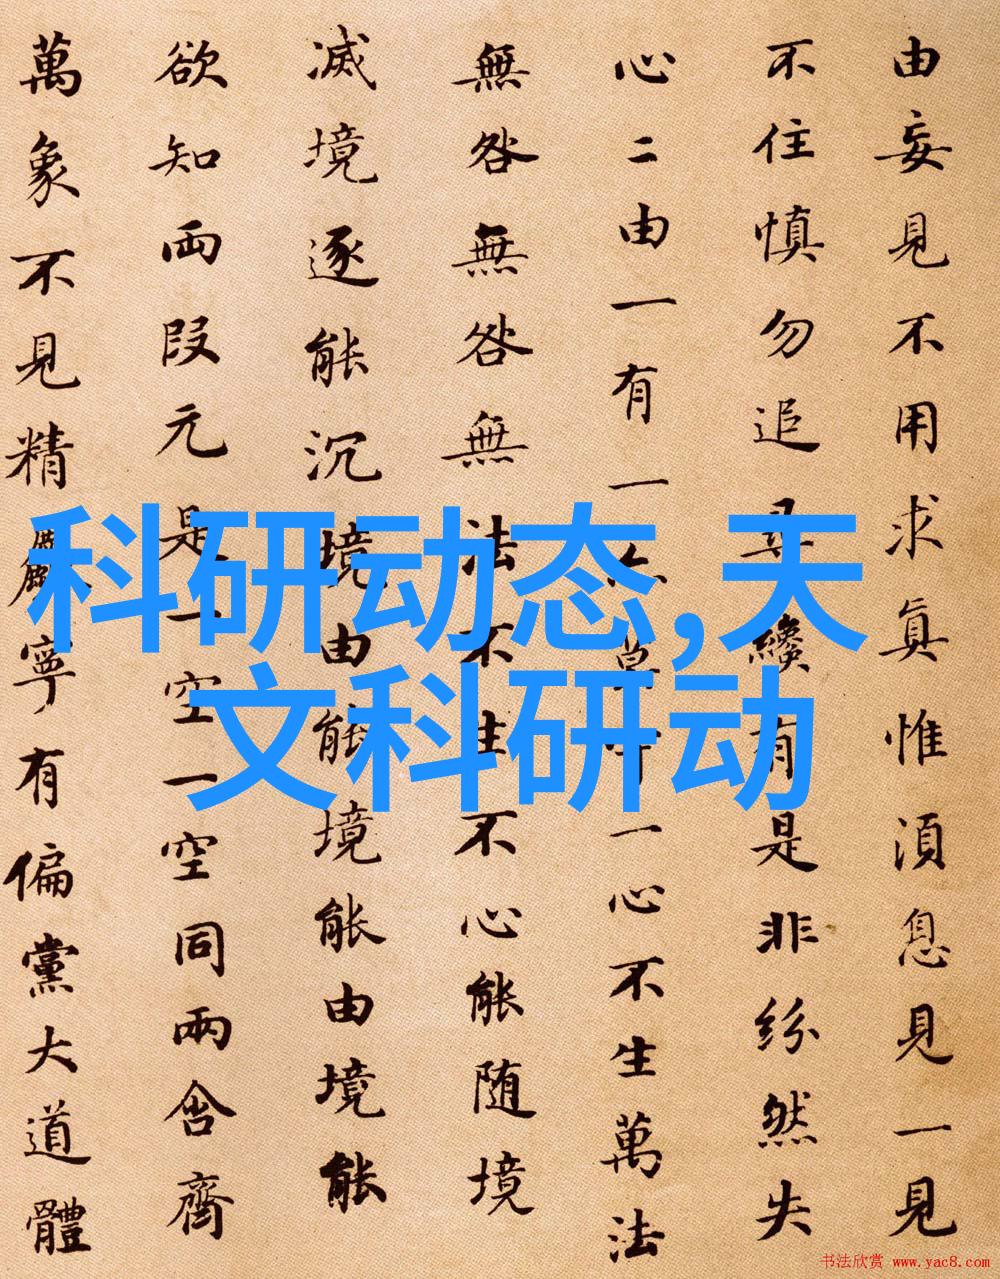 由妄見不用求真惟須息見一見
不住慎勿追尋纔有是非紛然失
心二由一有一亦莫守一心不生萬法
無咎無咎無法不生不心能随境
滅境逐能沉境由能境能由境能
欲知兩段元是一空一空同兩含齊
萬象不見精麤寧有偏黨大道體
科研动态,天
文科研动
书法欣赏 www.yac8.com